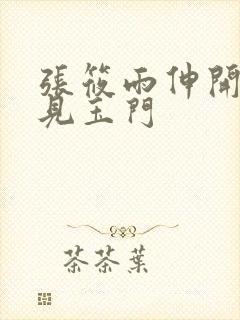 張筱雨伸開
見玉門
茶茶葉